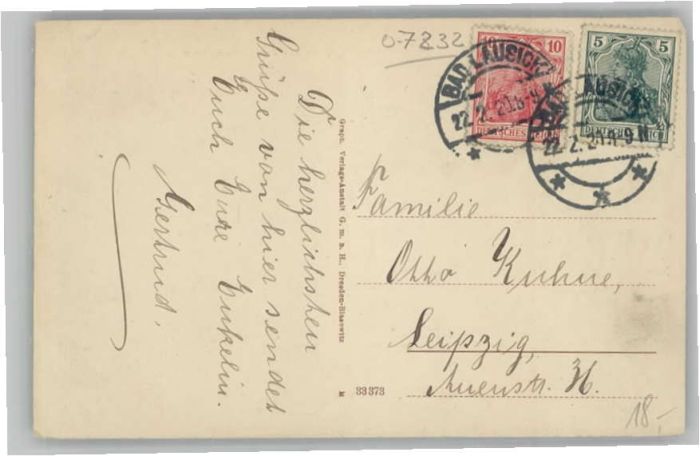 Die herzlichsten
Grüße von hier sendet
Euch Eure Enkelin.
Gertrud.
Graph. Verlags-Anstalt G. m. b. H., Dresden-Blasewitz
33373
07232
10
DEUTSCHES REICH
5
DEUTSCHES REICH
BAD LAUSICK
22.2.20.8-9
BAD LAUSICK
22.2.20.8-9
Familie
Otto Kuhne,
Leipzig,
Auenstr. 36.
18,-